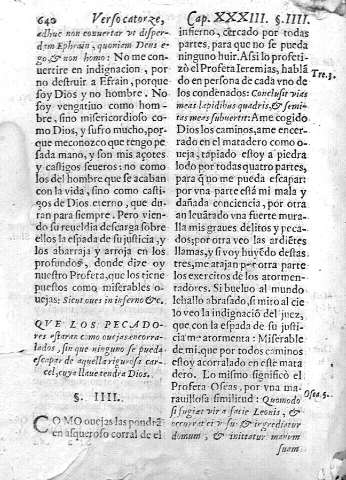 640 Verso catorze,
adhuc non conuertar vt disper-
dam Ephrain, quoniam Deus e-
go, & non homo: No me con-
uertire en indignacion, por
no destruir a Efrain, porque
soy Dios y no hombre. No
soy vengatiuo como hom-
bre, sino misericordioso co-
mo Dios, y sufro mucho, por-
que me conozco que tengo pe-
sada mano, y son mis açotes
y castigos seueros: no como
los del hombre que se acaban
con la vida, sino como casti-
gos de Dios eterno, que du-
ran para siempre. Pero viendo
su reueldia descarga sobre
ellos la espada de su justicia, y
los abarraja y arroja en los
profundos, donde dize oy
nuestro Profeta, que los tiene
puestos como miserables o-
uejas: Sicut oues in inferno &c.
QVE LOS PECADO-
res estaran como ouejas encorra-
lados, sin que ninguno se pueda
escapar de aquella rigurosa car-
cel, cuya llaue tendra Dios.
§. IIII.
COMO ouejas las pondrā
en asqueroso corral de el
Cap. XXXIII. §. IIII.
infierno, cercado por todas
partes, para que no se pueda
ninguno huir. Assi lo profeti-
zò el Profeta Ieremias, hablā
do en persona de cada vno de
los condenados: Conclusit vias
meas lapidibus quadris, & semi-
tas meas subuertit: A me cogido
Dios los caminos, ame encerr-
rado en el matadero como o-
ueja, tapiado estoy a piedra
lodo por todas quatro partes,
para q̄ no me pueda escapar:
por vna parte està mi mala y
dañada conciencia, por otra
an leuātado vna fuerte mura-
lla mis graues delitos y peca-
dos; por otra veo las ardiētes
llamas, y si voy huyēdo destas
tres, me atajan por otra parte
los exercitos de los atormen-
tadores. Si bueluo al mundo
lehallo abrasado, si miro al cie
lo veo la indignaciō del juez,
que con la espada de su justi-
cia me atormenta: Miserable
de mi, que por todos caminos
estoy acorralado en este mata
dero. Lo mismo significò el
Profeta Oseas, por vna ma-
rauillosa similitud: Quomodo
si fugiat vir a facie Leonis, &
occurrat ei vrsus: & ingrediatur
domum, & innitatur manum
suam
Tre. 3.
Osea 5.